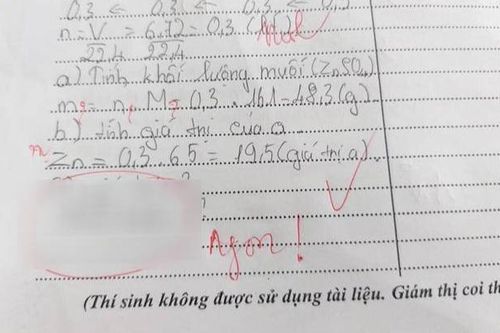 0,3 ← 0,3 ← 0,3 ← 0,3
n = V = 6,72 = 0,3 (mol)
22,4 22,4
a) Tính khối lượng muối (ZnSO₄)
m = n . M = 0,3 . 161 = 48,3 (g)
b) tính giá trị của a
m Zn = 0,3 . 65 = 19,5 (giá trị a)
Ngon !
(Thí sinh không được sử dụng tài liệu. Giám thị coi th